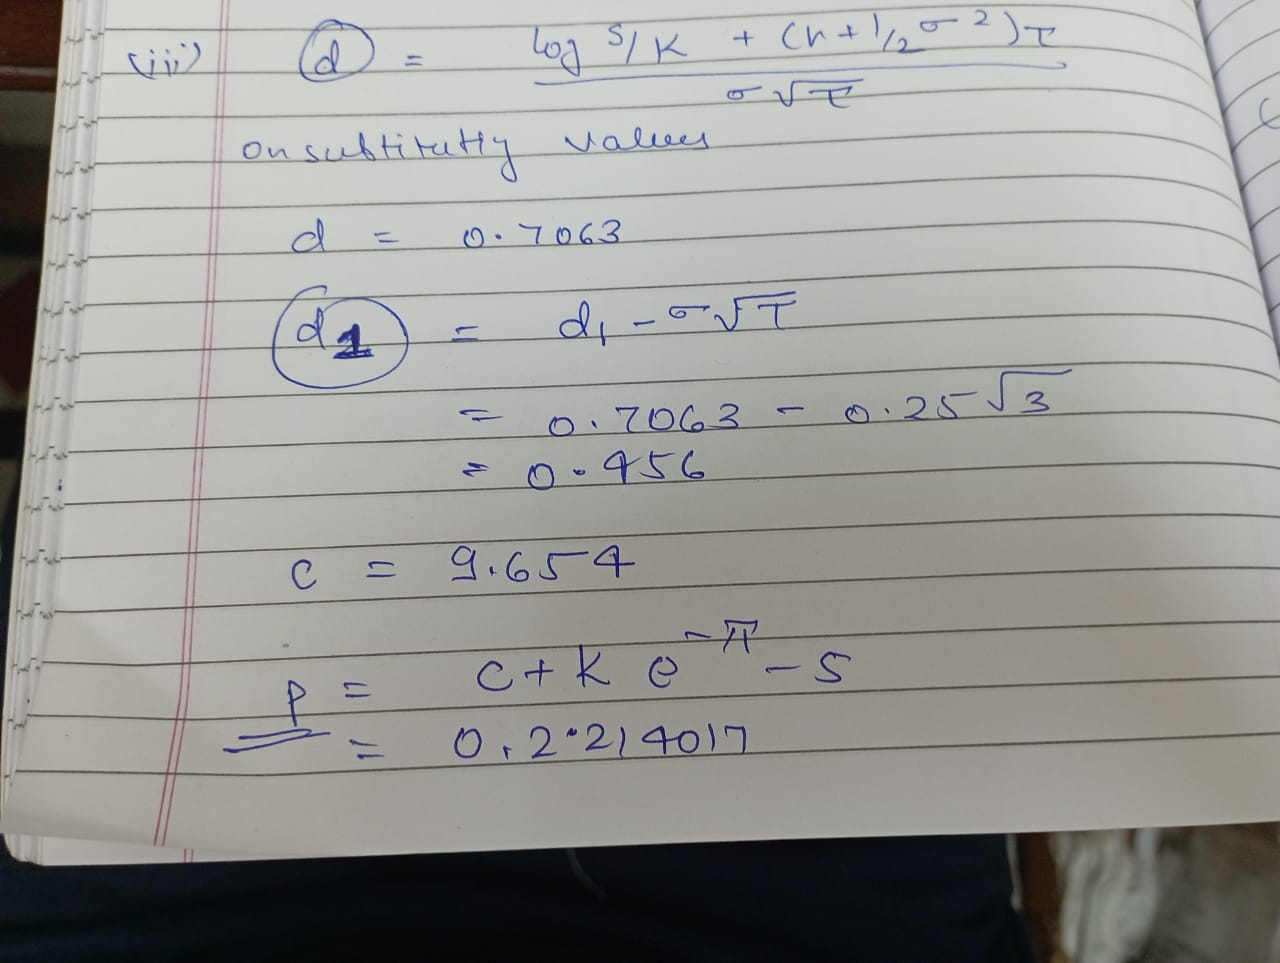 (iii) d = log S/K + (r + 1/2 σ²)τ
σ√τ
on substituting values
d = 0.7063
d1 = d1 - σ√T
= 0.7063 - 0.25√3
= 0.456
c = 9.654
P = c + K e^-rτ - S
= 0.2.214017